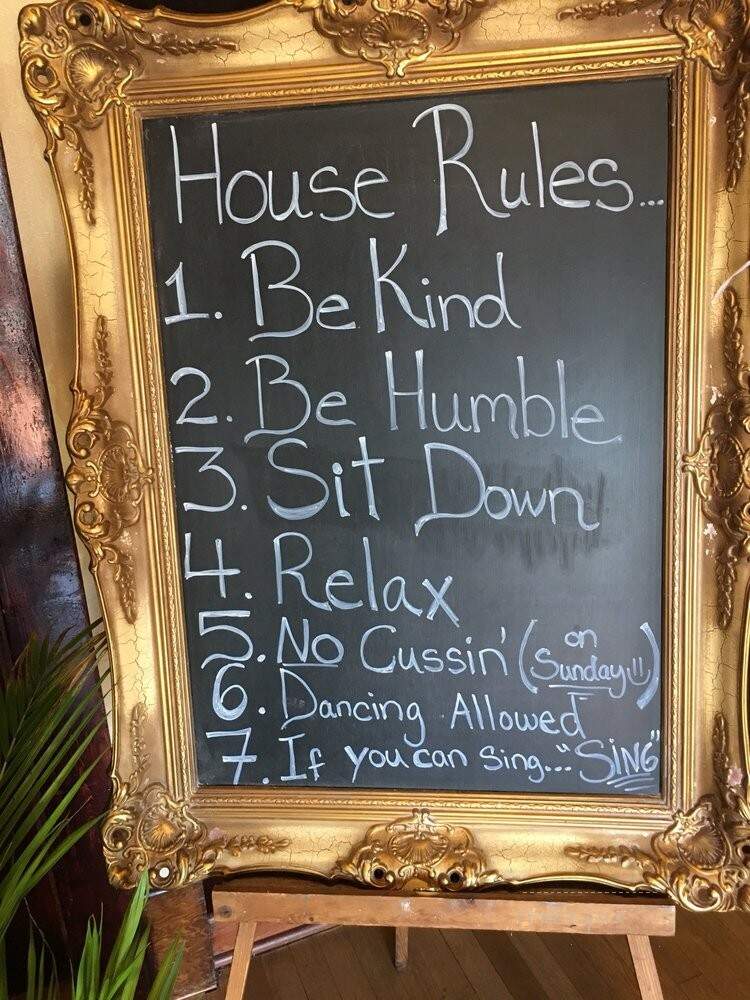 House Rules...
1. Be Kind
2. Be Humble
3. Sit Down
4. Relax
5. No Cussin' (on Sunday)
6. Dancing Allowed
7. If you can Sing... "SING"